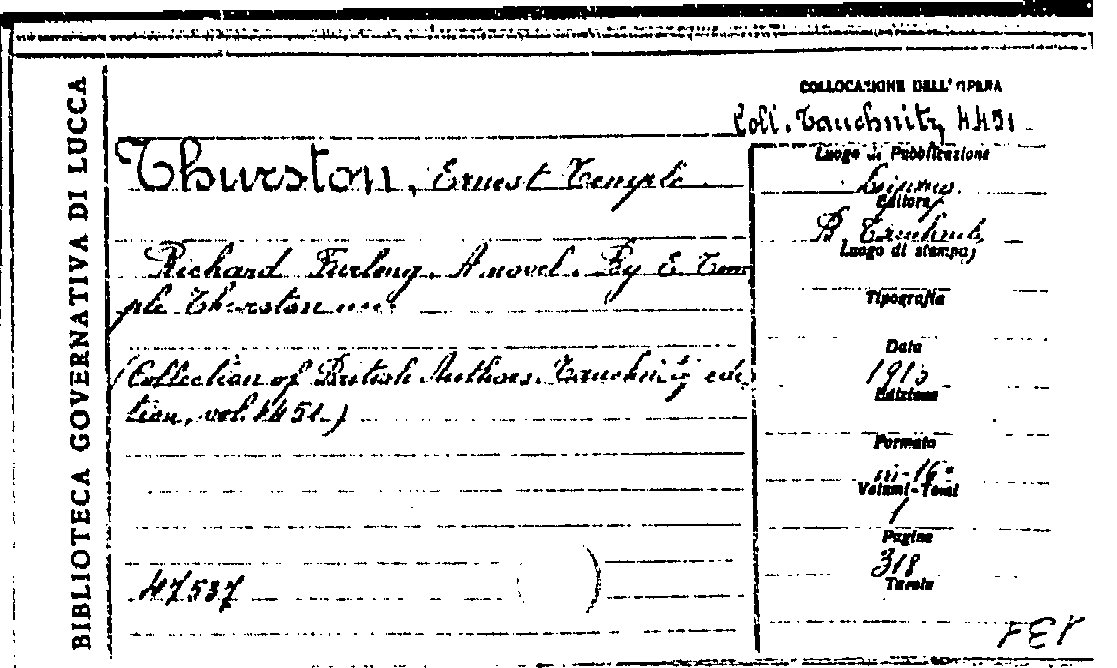 BIBLIOTECA GOVERNATIVA DI LUCCA
COLLOCAZIONE DELL'OPERA
Coll. Tauchnitz 4451
Thurston, Ernest Temple
Richard Furlong. A novel. By E. Tem
ple Thurston
(Collection of British Authors. Tauchnitz edi
tion, vol. 4451.)
47537
Luogo di Pubblicazione
Editore
B. Tauchnitz
Luogo di stampa
Tipografia
Data
1913
Edizione
Formato
in-16°
Volumi-Tomi
1
Pagine
318
Tavole